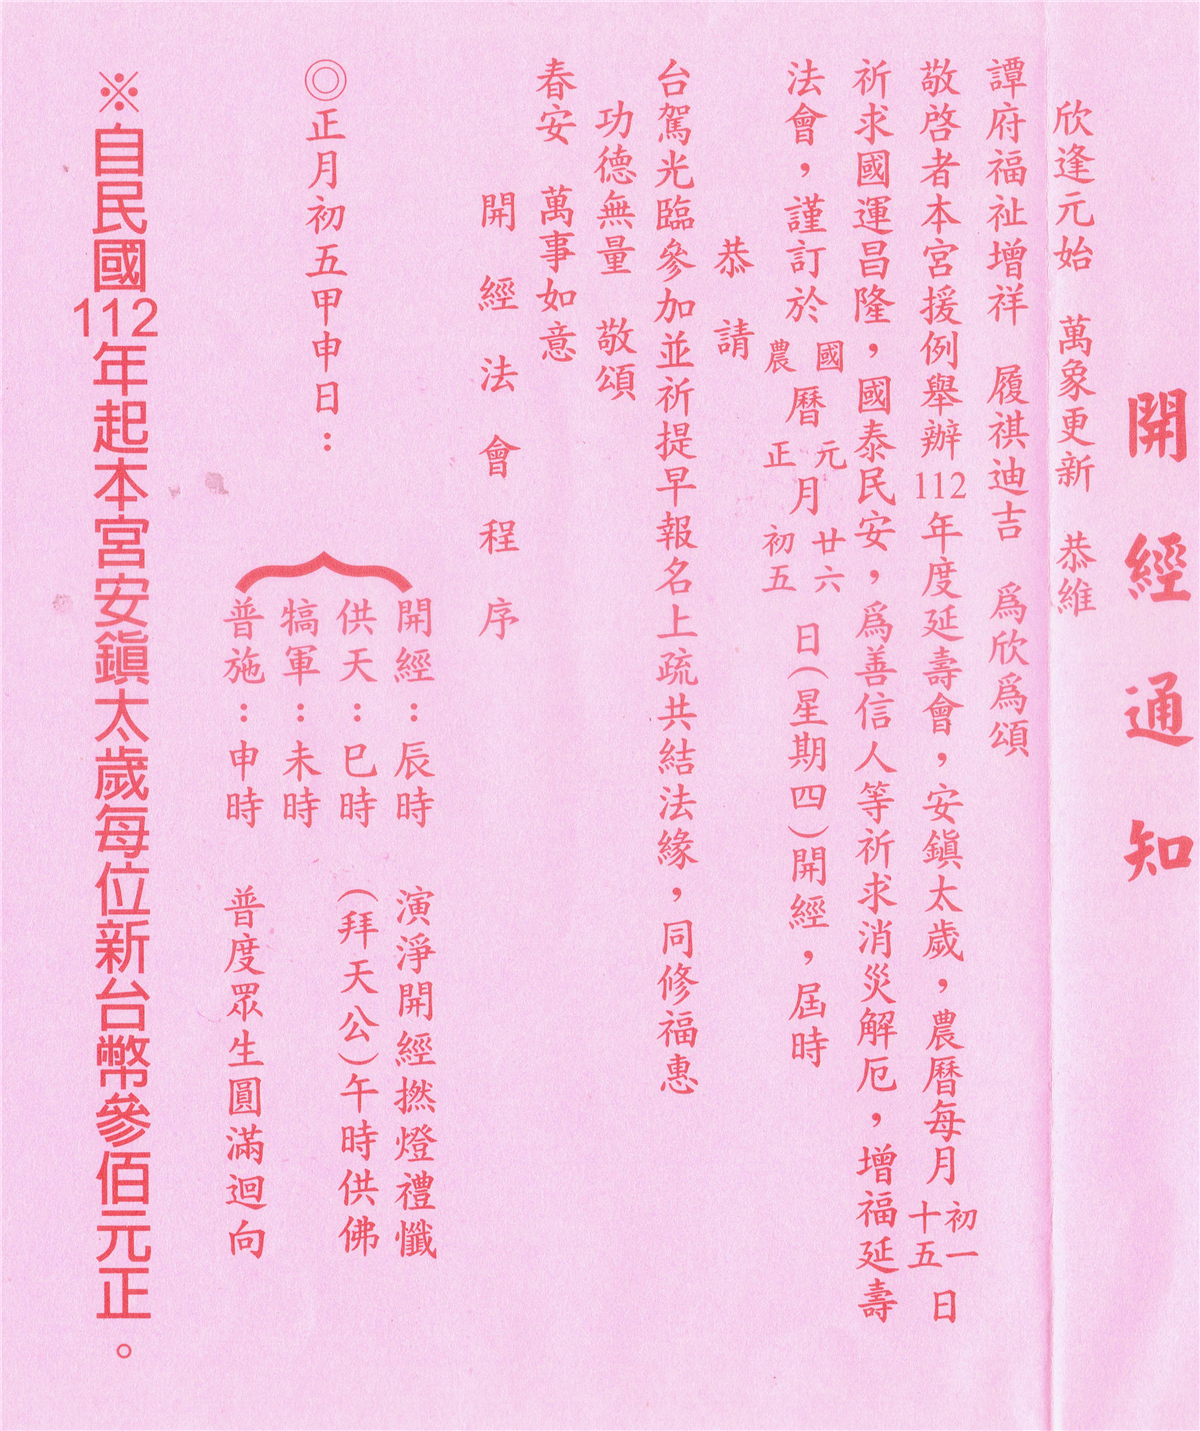 開經通知
欣逢元始　萬象更新　恭維
譚府福祉增祥　履祺迪吉　爲欣爲頌
敬啓者本宮援例舉辦112年度延壽會，安鎮太歲，農曆每月初一十五日
祈求國運昌隆，國泰民安，爲善信人等祈求消災解厄，增福延壽
法會，謹訂於國農曆元正月廿六初五日（星期四）開經，屆時
恭請
台駕光臨參加並祈提早報名上疏共結法緣，同修福惠
功德無量　敬頌
春安　萬事如意
開經法會程序
◎正月初五甲申日：
開經：辰時　演淨開經撚燈禮懺
供天：巳時　（拜天公）午時供佛
犒軍：未時
普施：申時　普度眾生圓滿迴向
※自民國112年起本宮安鎮太歲每位新台幣參佰元正。